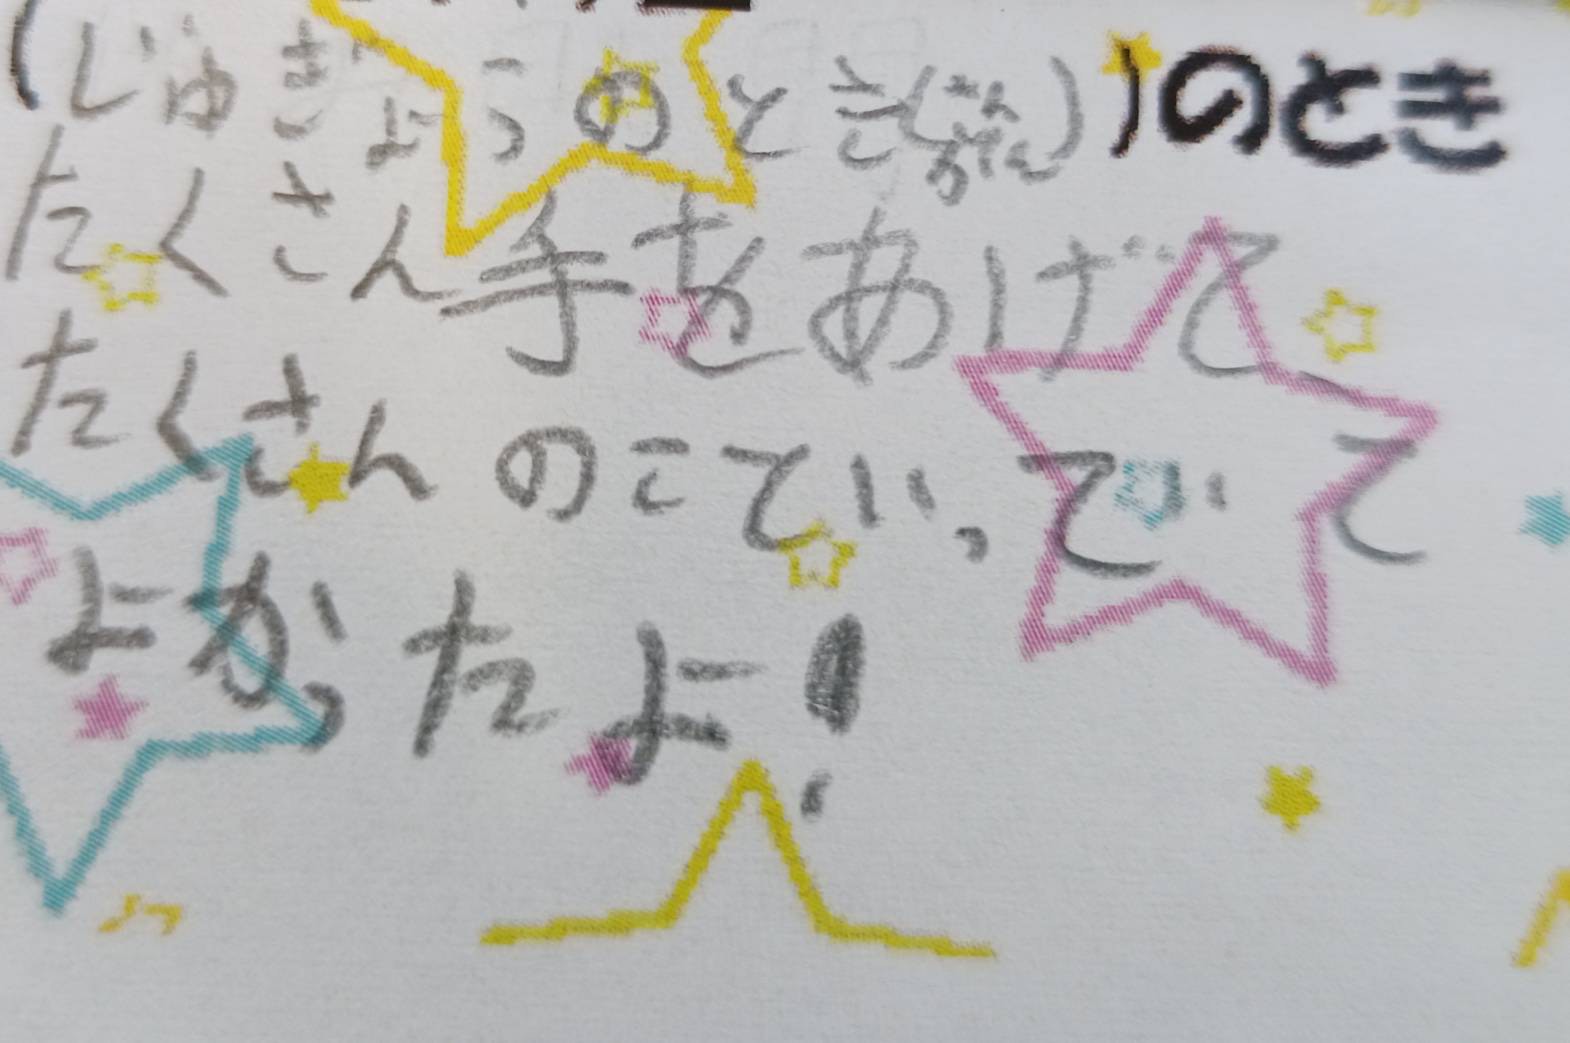 (じゅぎょうのとき(さんすう))のとき
たくさん手をあげて
たくさんのこてい、ていて
よかったよ!